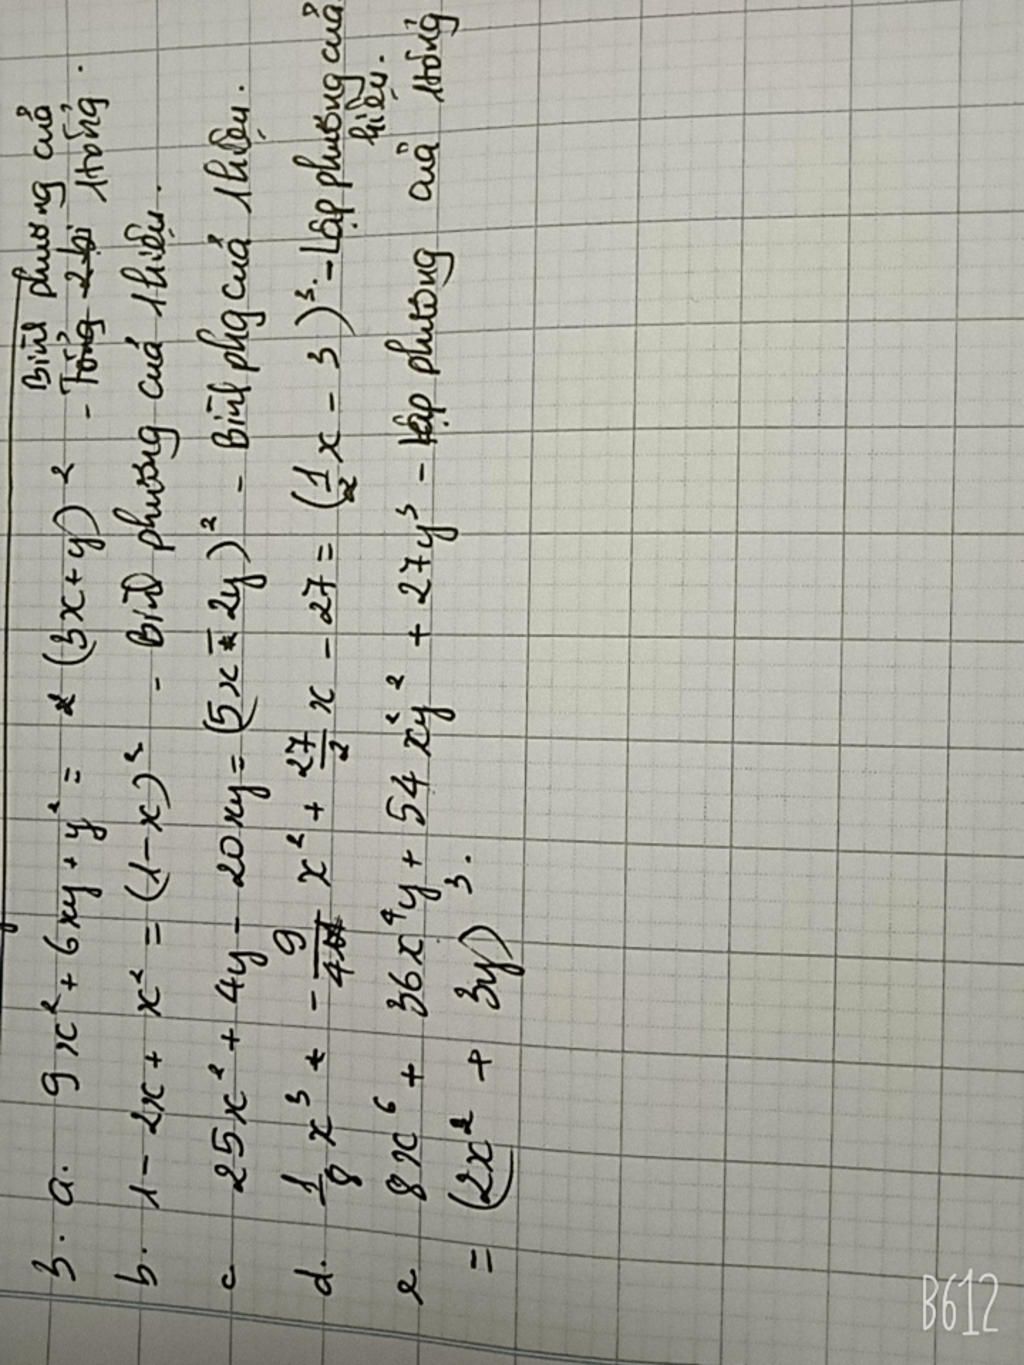 Bình phương của
3. a. 9x² + 6xy + y² = (3x + y)² - Tổng 2 lọ 1 tổng.
b. 1 - 2x + x² = (1 - x)² - Bình phương của 1 hiệu.
c 25x² + 4y - 20xy = (5x - 2y)² - Bình phg của 1 hiệu.
d. 1/8 x³ - 9/4 x² + 27/2 x - 27 = (1/2 x - 3)³. - Lập phương của
hiệu.
e 8x⁶ + 36x⁴y + 54x²y² + 27y³ - Lập phương của 1 tổng
= (2x² + 3y)³.
B612